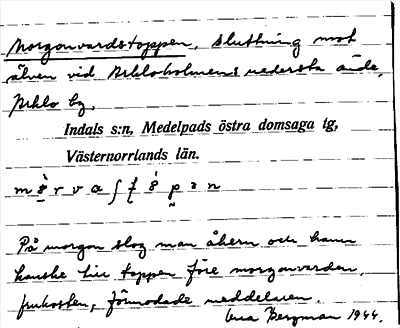 Morgonvardstoppen, sluttning mot
älven vid Bibloholmens nedersta ände,
Biblo by.
Indals s:n, Medelpads östra domsaga tg,
Västernorrlands län.
På morgon slog man åkern och hann
kanske till toppen före morgonvarden,
frukosten, förmodade meddelaren.
Bergman 1944.